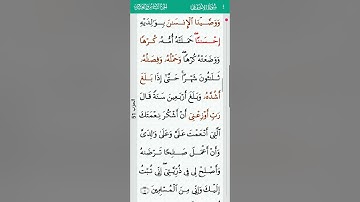 وَوَصَّيْنَا ٱلْإِنسَٰنَ بِوَٰلِدَيْهِ
إِحْسَٰنًا ۖ حَمَلَتْهُ أُمُّهُۥ كُرْهًا
وَوَضَعَتْهُ كُرْهًا ۖ وَحَمْلُهُۥ وَفِصَٰلُهُۥ
ثَلَٰثُونَ شَهْرًا ۚ حَتَّىٰٓ إِذَا بَلَغَ
أَشُدَّهُۥ وَبَلَغَ أَرْبَعِينَ سَنَةً قَالَ
رَبِّ أَوْزِعْنِىٓ أَنْ أَشْكُرَ نِعْمَتَكَ
ٱلَّتِىٓ أَنْعَمْتَ عَلَىَّ وَعَلَىٰ وَٰلِدَىَّ
وَأَنْ أَعْمَلَ صَٰلِحًا تَرْضَىٰهُ
وَأَصْلِحْ لِى فِى ذُرِّيَّتِىٓ ۖ إِنِّى تُبْتُ
إِلَيْكَ وَإِنِّى مِنَ ٱلْمُسْلِمِينَ